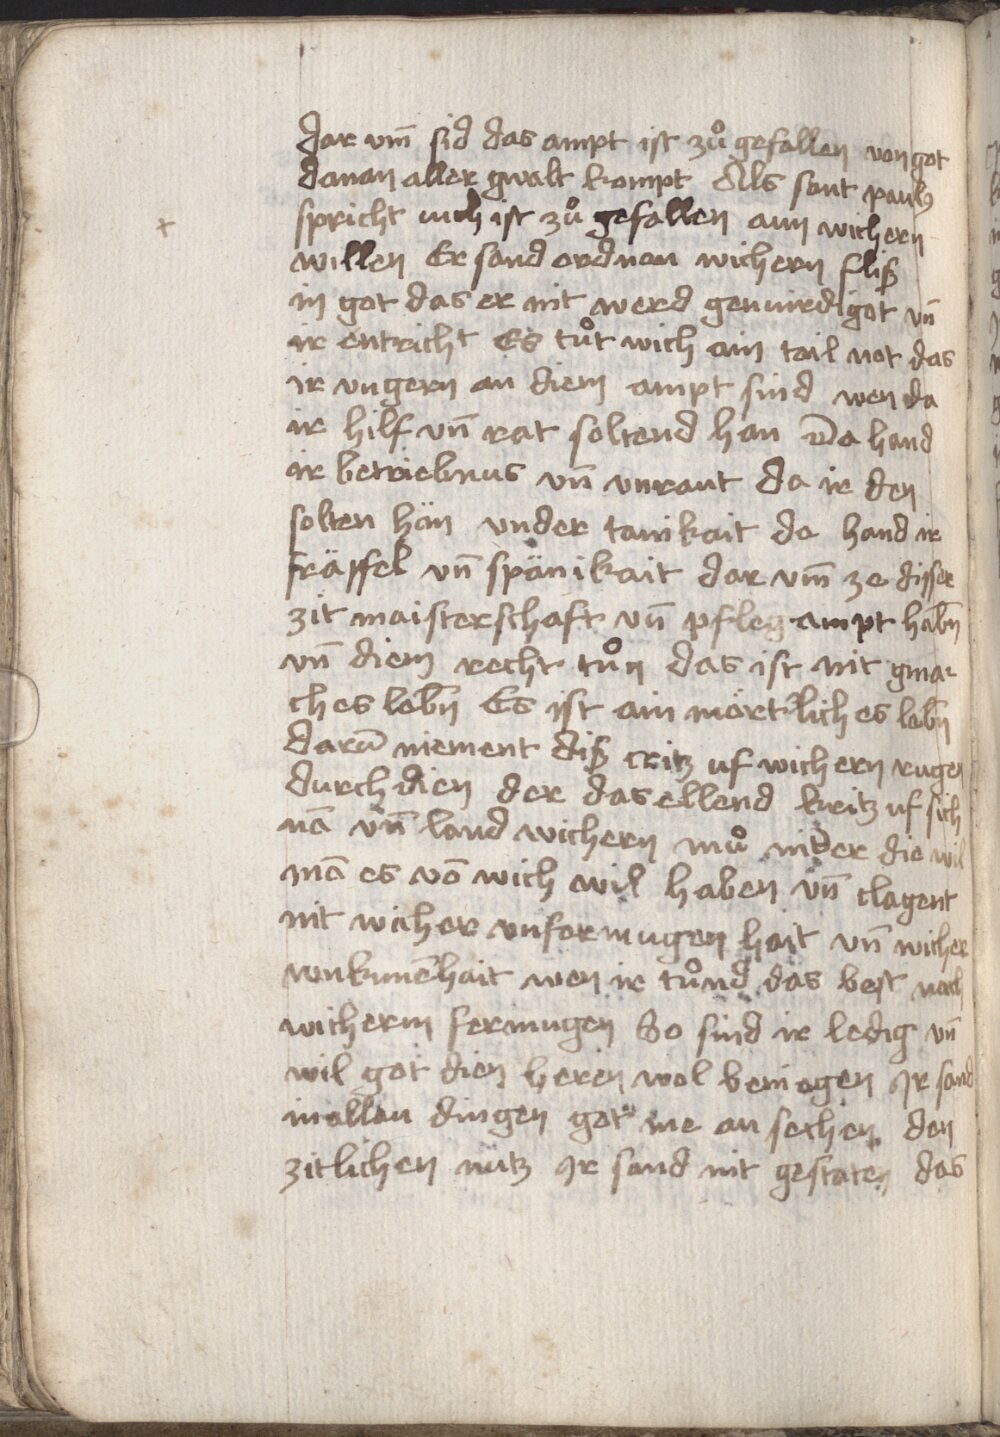 dar vm̄ sid das ampt ist zuͦ gefallen von got
danan aller gwalt kompt Als sant paulꝰ
spricht uich ist zuͦ gefallen ann wichern
willen Er sand ordnan wichern fliß
in got das er nit werd genuirdigot vn̄
ir entricht Es tuͦt wich ain tail not das
ir vngern an diem ampt sind wen da
ir hilf vn̄ rat soltend han Da hand
ir betriebnus vn̄ vnraut da ir den
solten hän vnder tanikait da hand ir
fräffel vn̄ spänikait dar vm̄ ze disser
zit maisterschaft vn̄ pfleg ampt habn̄
vn̄ diem recht tuͦn das ist nit gma-
ches lebn̄ Es ist ain mörtlich es lebn̄
darū niement diß critz uf wichern rugen
durch dien der das ellend kritz uf sich
nā vn̄ land wichern muͦ nider die wil
mā es vō wich wil haben vn̄ clagent
nit wicher vnfermugen hait vn̄ wicher
vnkunnēhait wen ir tuͦnd das best nach
wicherm fermugen So sind ir ledig vn̄
wil got dien heren wol beniegen Ir sand
in allan dingen got me an sechen den
zitlichen nutz Ir sand nit gestaten das